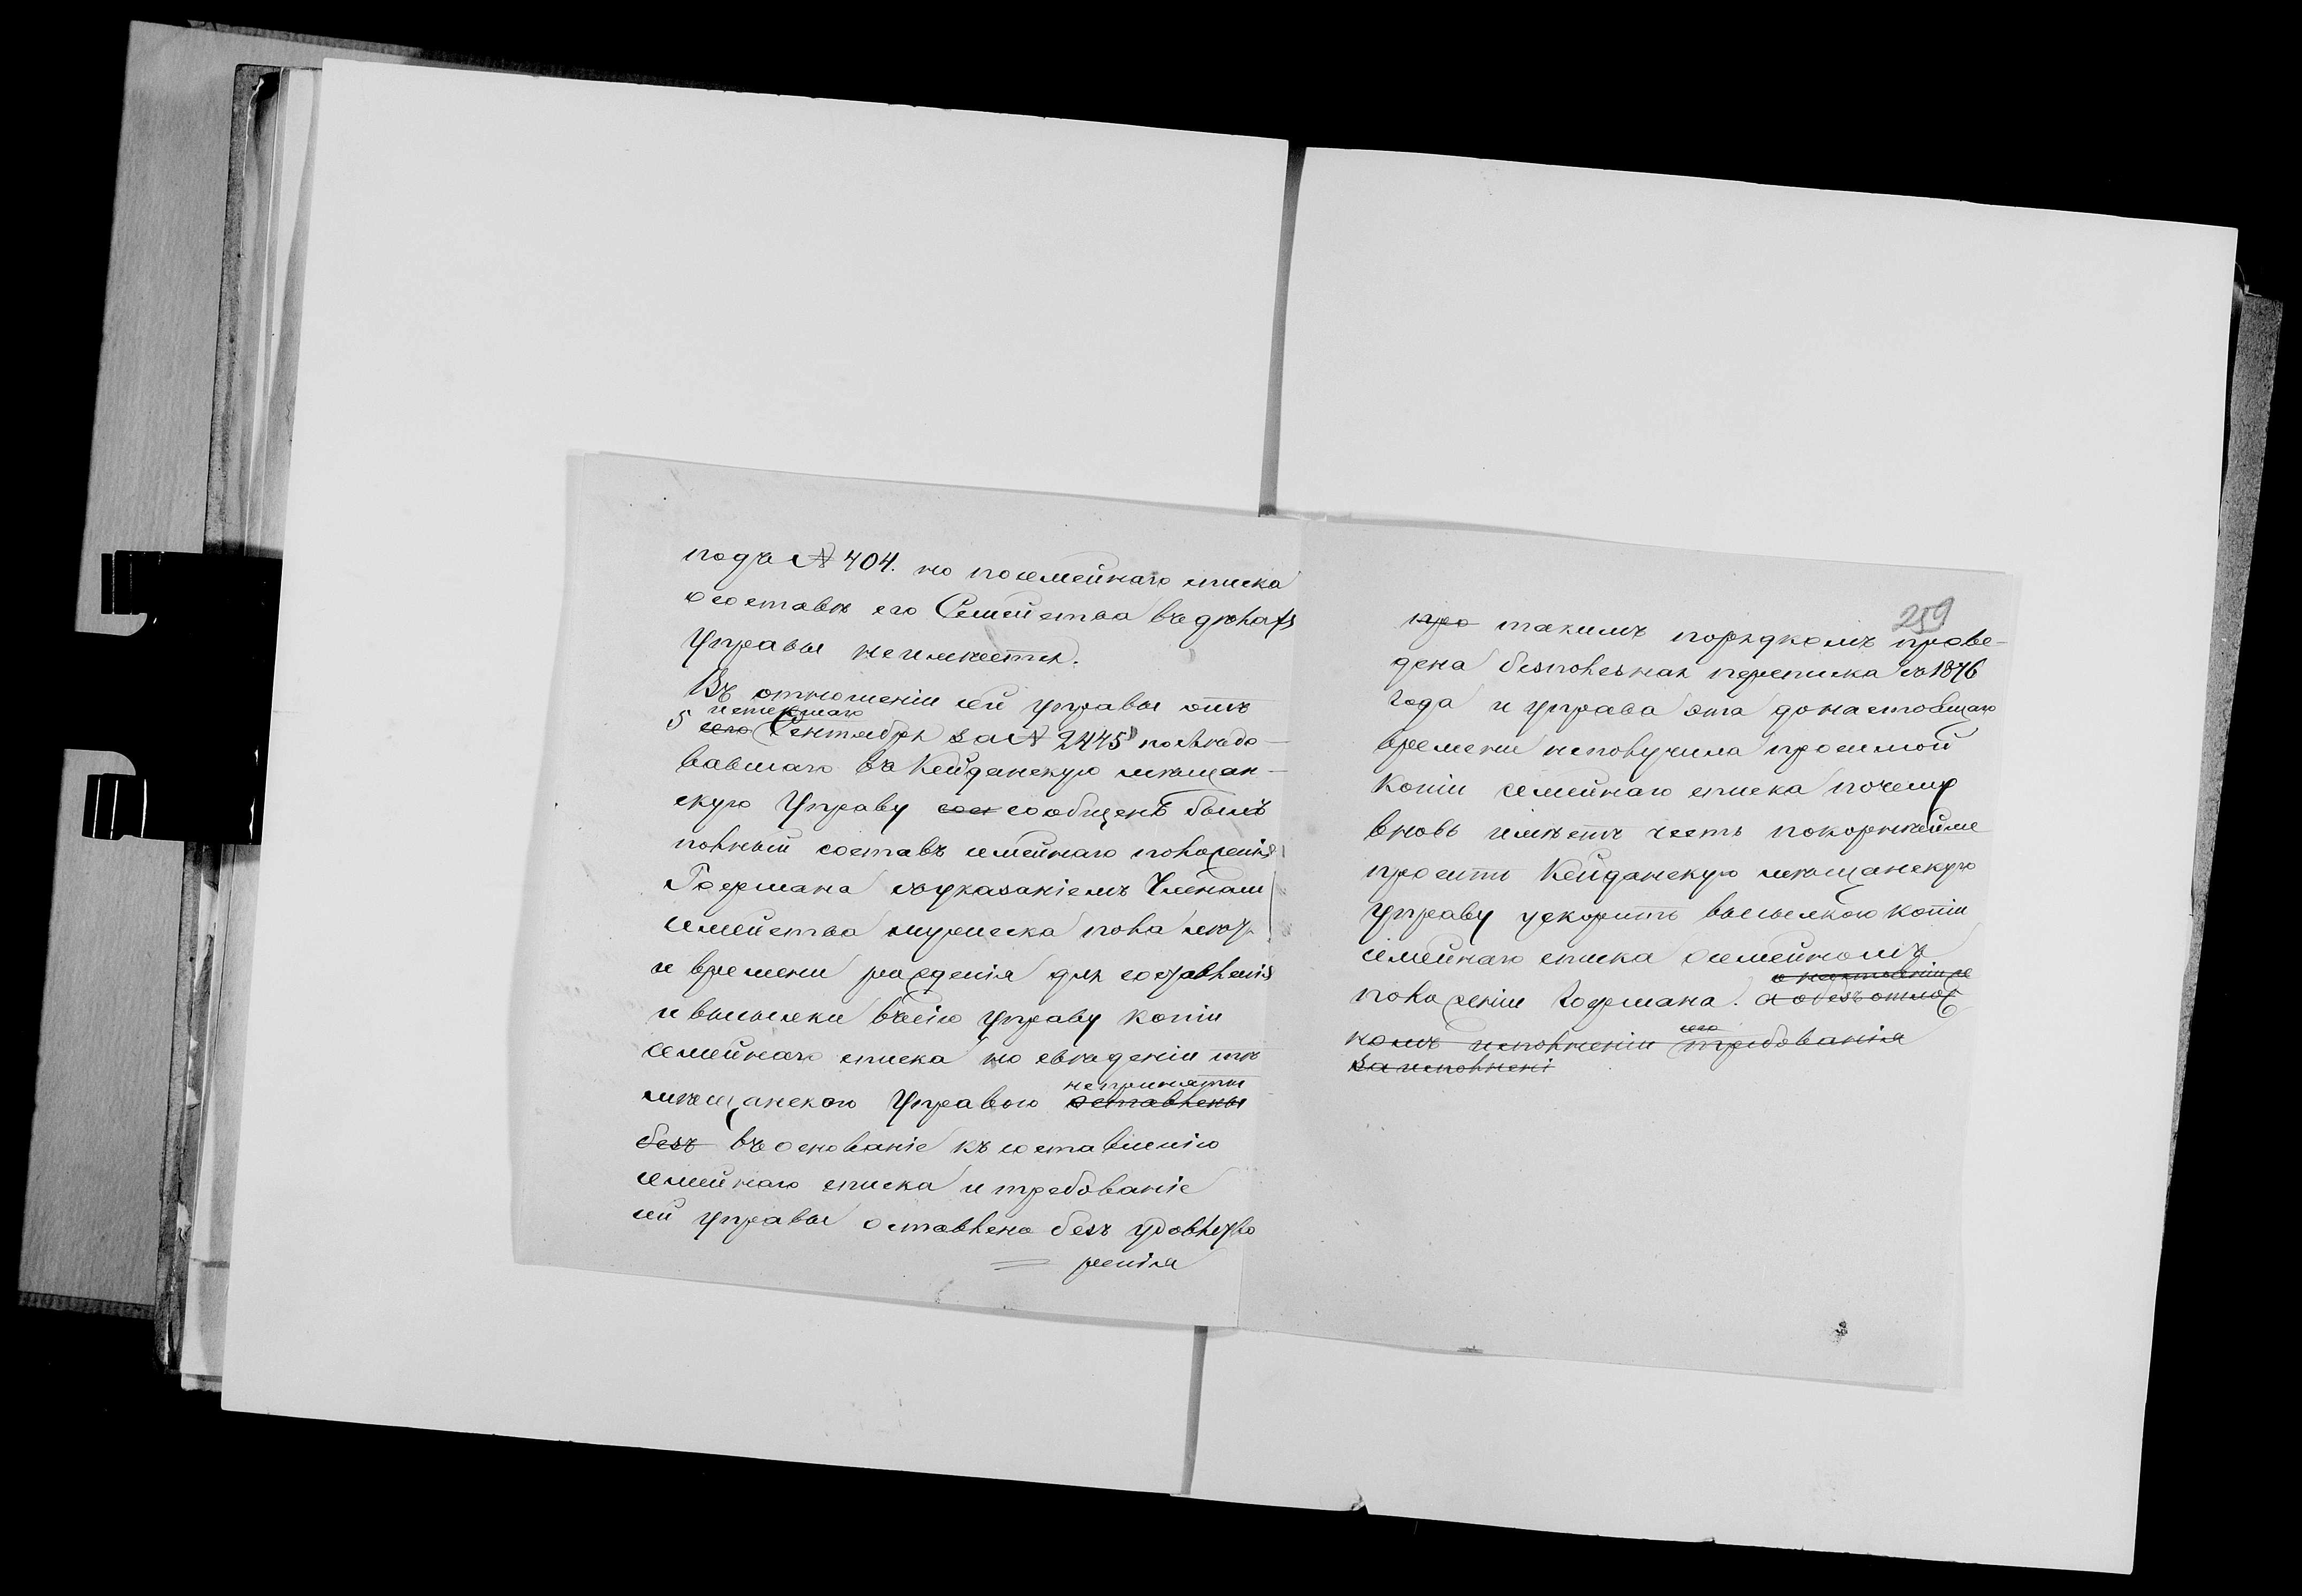 подъ № 404. но посемейнаго списка
о составѣ его Семейства въ дѣлахъ
Управы неимѣется.
Въ отношеніи сей управы отъ
истекшаго
5 сего Сентября за № 2445 послѣдо-
вавшаго въ Кейданскую мѣщан-
скую Управу сос сообщенъ былъ
полный составъ семейнаго положенія
Гофмана съ указаніемъ Членами
семейства мужеска пола лѣтъ
и времени рожденія для составленія
и высылки въ сію управу копіи
семейнаго списка но свѣденіи тѣ
мѣщанскою Управою непри­няты
оставлены
безъ въ основаніе къ составленію
семейнаго списка и требованіе
сей управы оставлено безъ удовлетво
ренія
259
про такимъ порядкомъ прове-
дена безполезная переписка съ 1876
года и управа эта до настоящаго
времени неполучила просимой
копіи семейнаго списка почему
вновь имѣетъ честь покорнѣйше
просить Кейданскую мѣщанскую
управу ускорить высылкою копіи
семейнаго списка о семейномъ
положеніи Гофмана. а о безъотлож
номъ исполненіи сего требованія
за исполнені